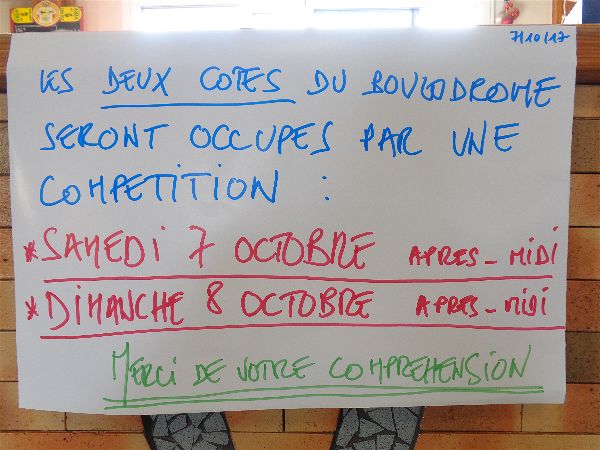 7/10/17
LES DEUX COTES DU BOULODROME
SERONT OCCUPES PAR UNE
COMPETITION :
* SAMEDI 7 OCTOBRE APRES-MIDI
* DIMANCHE 8 OCTOBRE APRES-MIDI
MERCI DE VOTRE COMPREHENSION